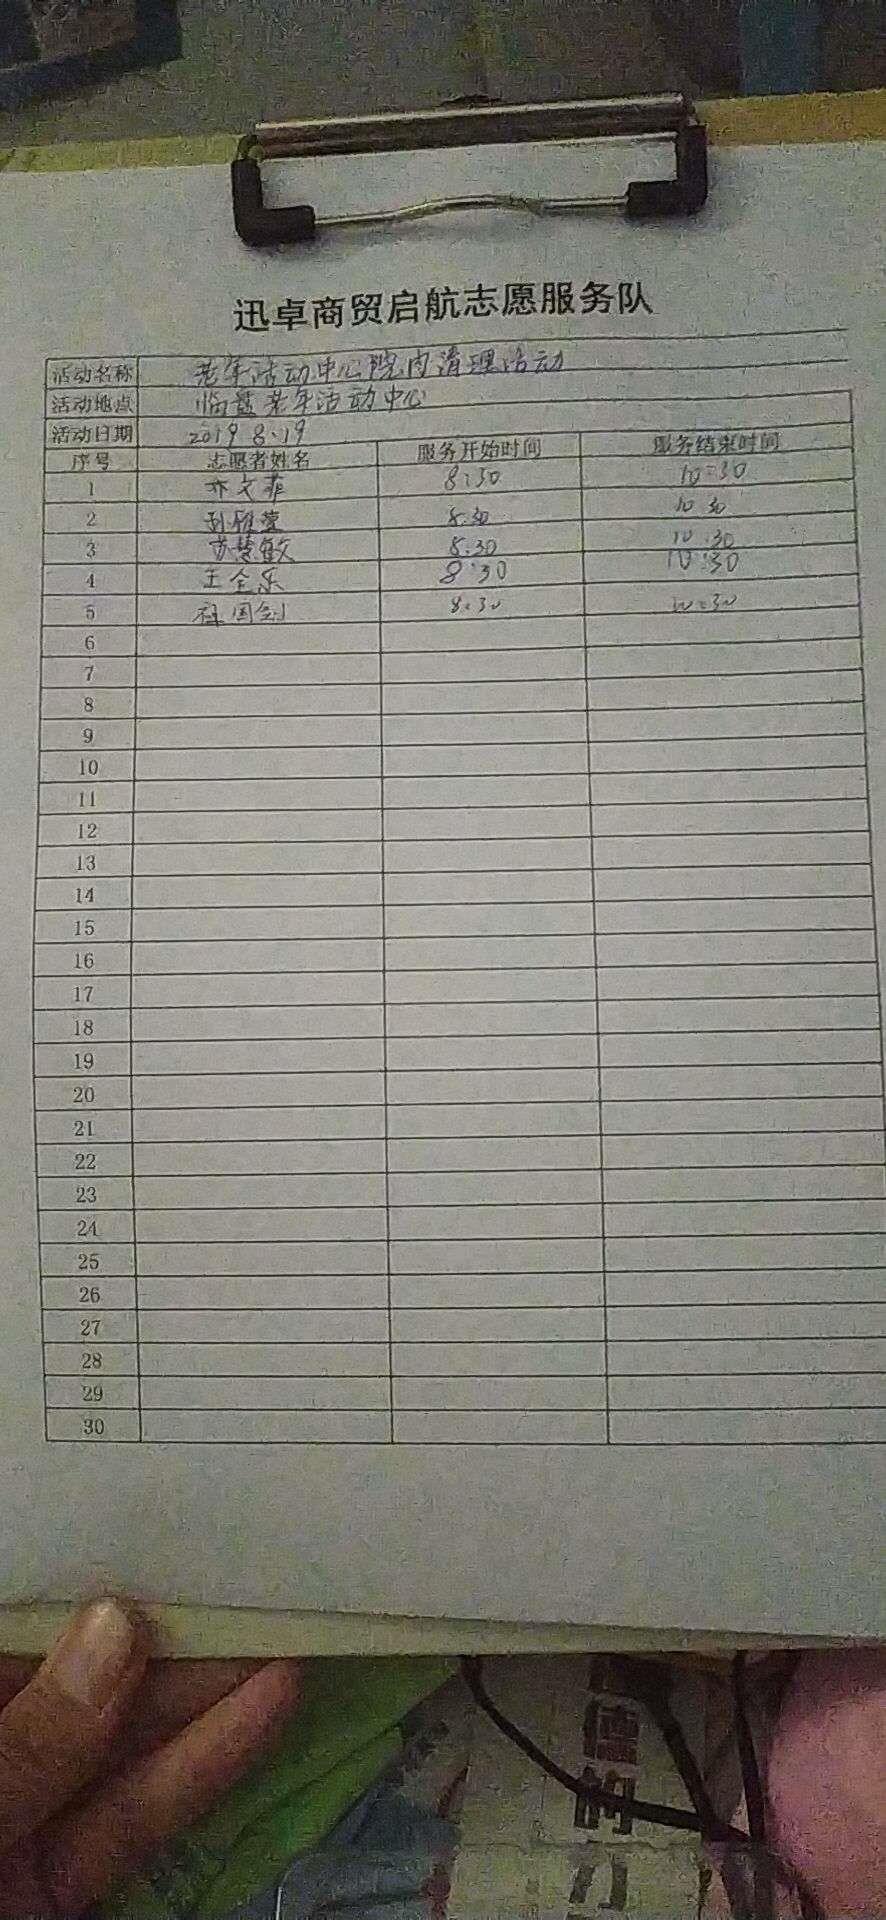 迅卓商贸启航志愿服务队
活动名称 老年活动中心院内清理活动
活动地点 临盘老年活动中心
活动日期 2019 8.19
序号 志愿者姓名 服务开始时间 服务结束时间
1 文菲 8:30 10:30
2 8.30 10 30
3 苏慧敏 8.30 10:30
4 王全乐 8:30 10:30
5 国剑 8:30 10:30
6
7
8
9
10
11
12
13
14
15
16
17
18
19
20
21
22
23
24
25
26
27
28
29
30